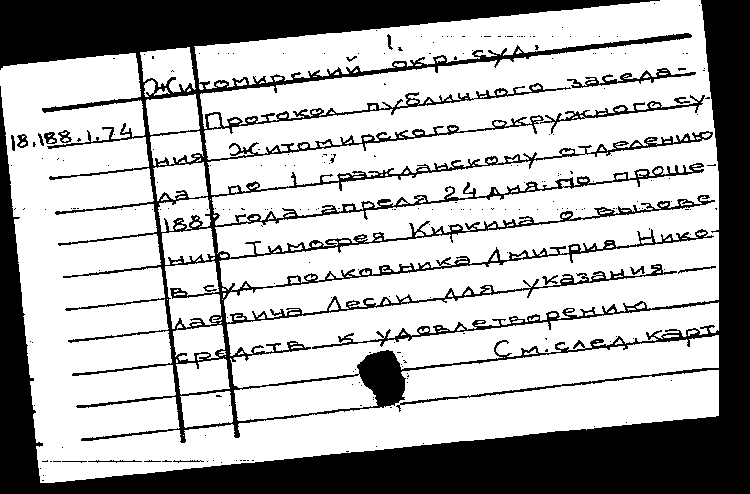 1.
Житомирский окр. суд.
18.188.1.74 Протокол публичного заседа-
ния Житомирского окружного су-
да по 1 гражданскому отделению
1887 года апреля 24 дня: по проше-
нию Тимофея Киркина о вызове
в суд полковника Дмитрия Нико-
лаевича Лесли для указания
средств к удовлетворению
См. след. карт.